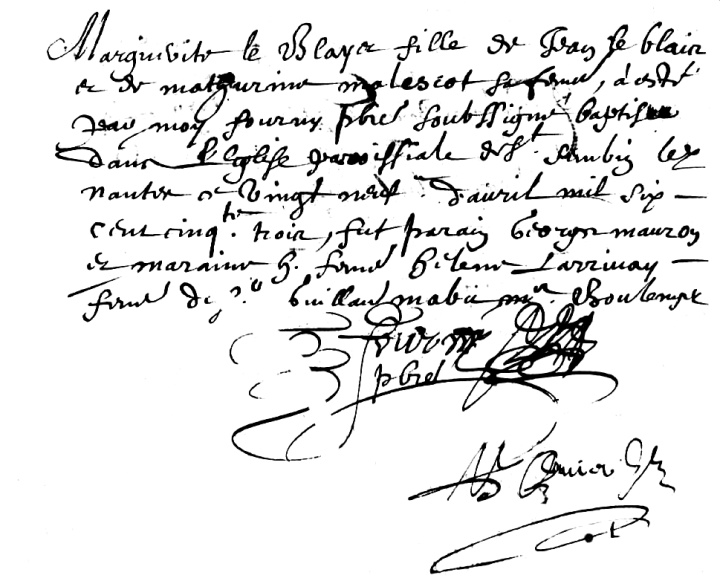 Marguerite le Blaye fille de Jean le blair
et de mathurine malescot sa feme, a esté
par moy fourny pbre soubssigné baptisee
dans L'Eglise parroissiale de St. Saubin lez
nantes ce vingt neuf d'auril mil six
cent cinqte. trois, fut parain George mauron
et maraine h. feme helene Larriuay
feme de Guillau mabii mre. Boulenger
fourny
pbre